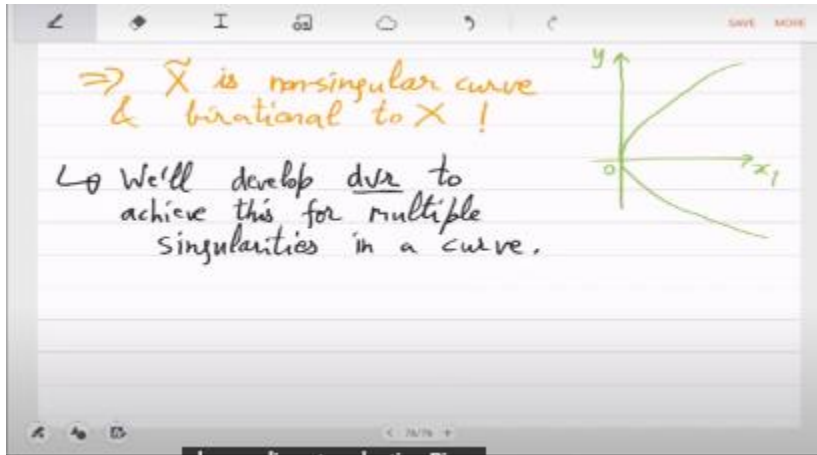 SAVE MORE
⇒ X̃ is non-singular curve
& birational to X !
↳ We'll develop dvr to
achieve this for multiple
singularities in a curve.
y
0
x₁
76/76